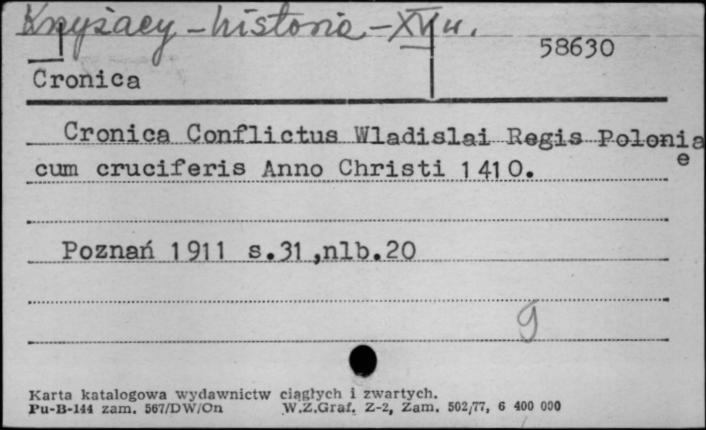 Krzyżacy - historia - XV w.
58630
Cronica
Cronica Conflictus Wladislai Regis Polonia
e
cum cruciferis Anno Christi 1410.
Poznań 1911 s.31,nlb.20
9
Karta katalogowa wydawnictw ciągłych i zwartych.
Pu-B-144 zam. 567/DW/On W.Z.Graf. Z-2, Zam. 502/77, 6 400 000